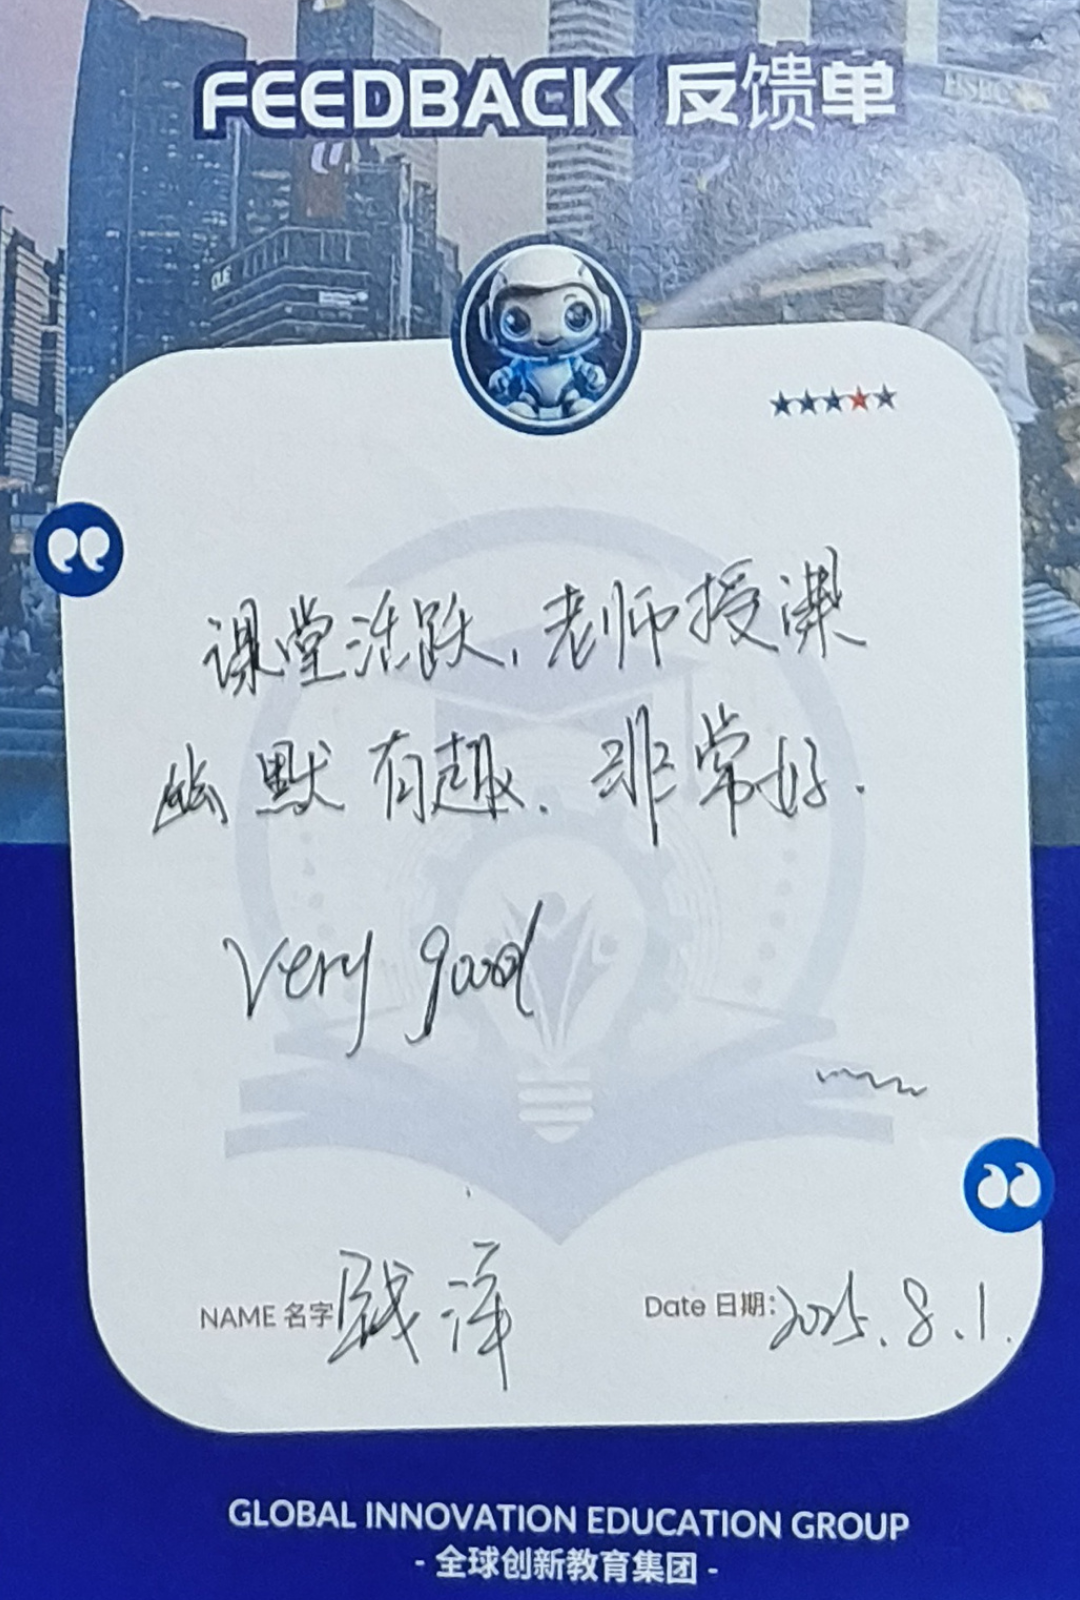 FEEDBACK 反馈单
HSBC
课堂活跃,老师授课
幽默有趣.非常好.
Very good
NAME 名字
Date 日期: 2025.8.1.
GLOBAL INNOVATION EDUCATION GROUP
- 全球创新教育集团 -